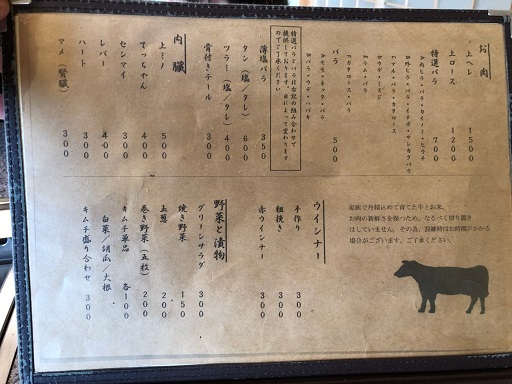 お肉
上ヘレ 1500
上ロース 1200
特選バラ 700
バラ 500
特選バラとバラは右記の組み合わせで
提供しております。日によって変わります
のでご了承ください
薄塩バラ 350
タン(塩/タレ) 600
ツラミ(塩/タレ) 400
骨付きテール 300
内臓
上ミノ 500
てっちゃん 400
センマイ 300
レバー 400
ハート 300
マメ(腎臓) 300
家族で丹精込めて育てた牛とお米。
お肉の新鮮さを保つため、なるべく切り置き
はしていません。その為、混雑時はお時間がかかる
場合がございます。ご了承ください。
ウインナー
手作り 300
粗挽き 300
赤ウインナー 300
野菜と漬物
グリーンサラダ 300
焼き野菜 150
玉葱 200
巻き野菜(五枚) 200
キムチ単品 各100
白菜/胡瓜/大根
キムチ盛り合わせ 300